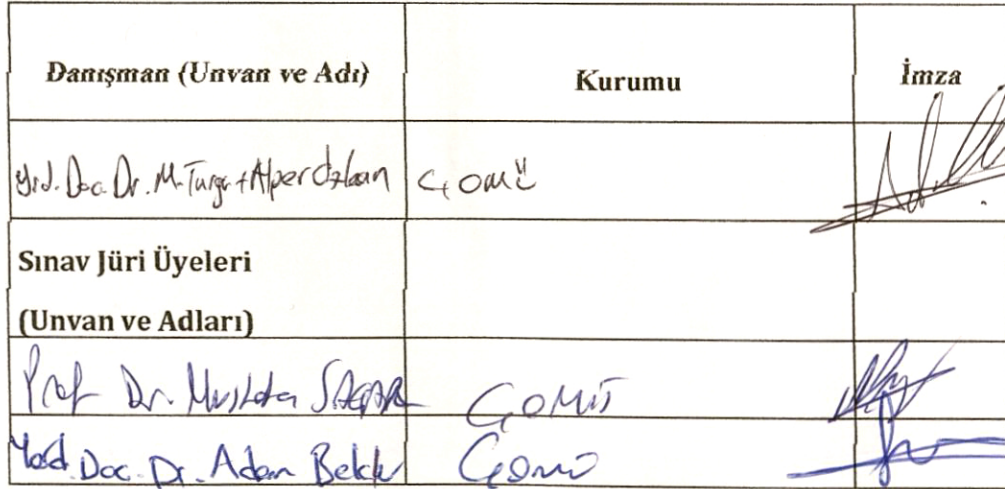 Danışman (Unvan ve Adı) Kurumu İmza
Yrd. Doc. Dr. M. Turgut Alper Özkan ÇOMÜ
Sınav Jüri Üyeleri
(Unvan ve Adları)
Prof Dr. Mustafa ÇOMÜ
Yrd. Doc. Dr. Adem ÇOMÜ